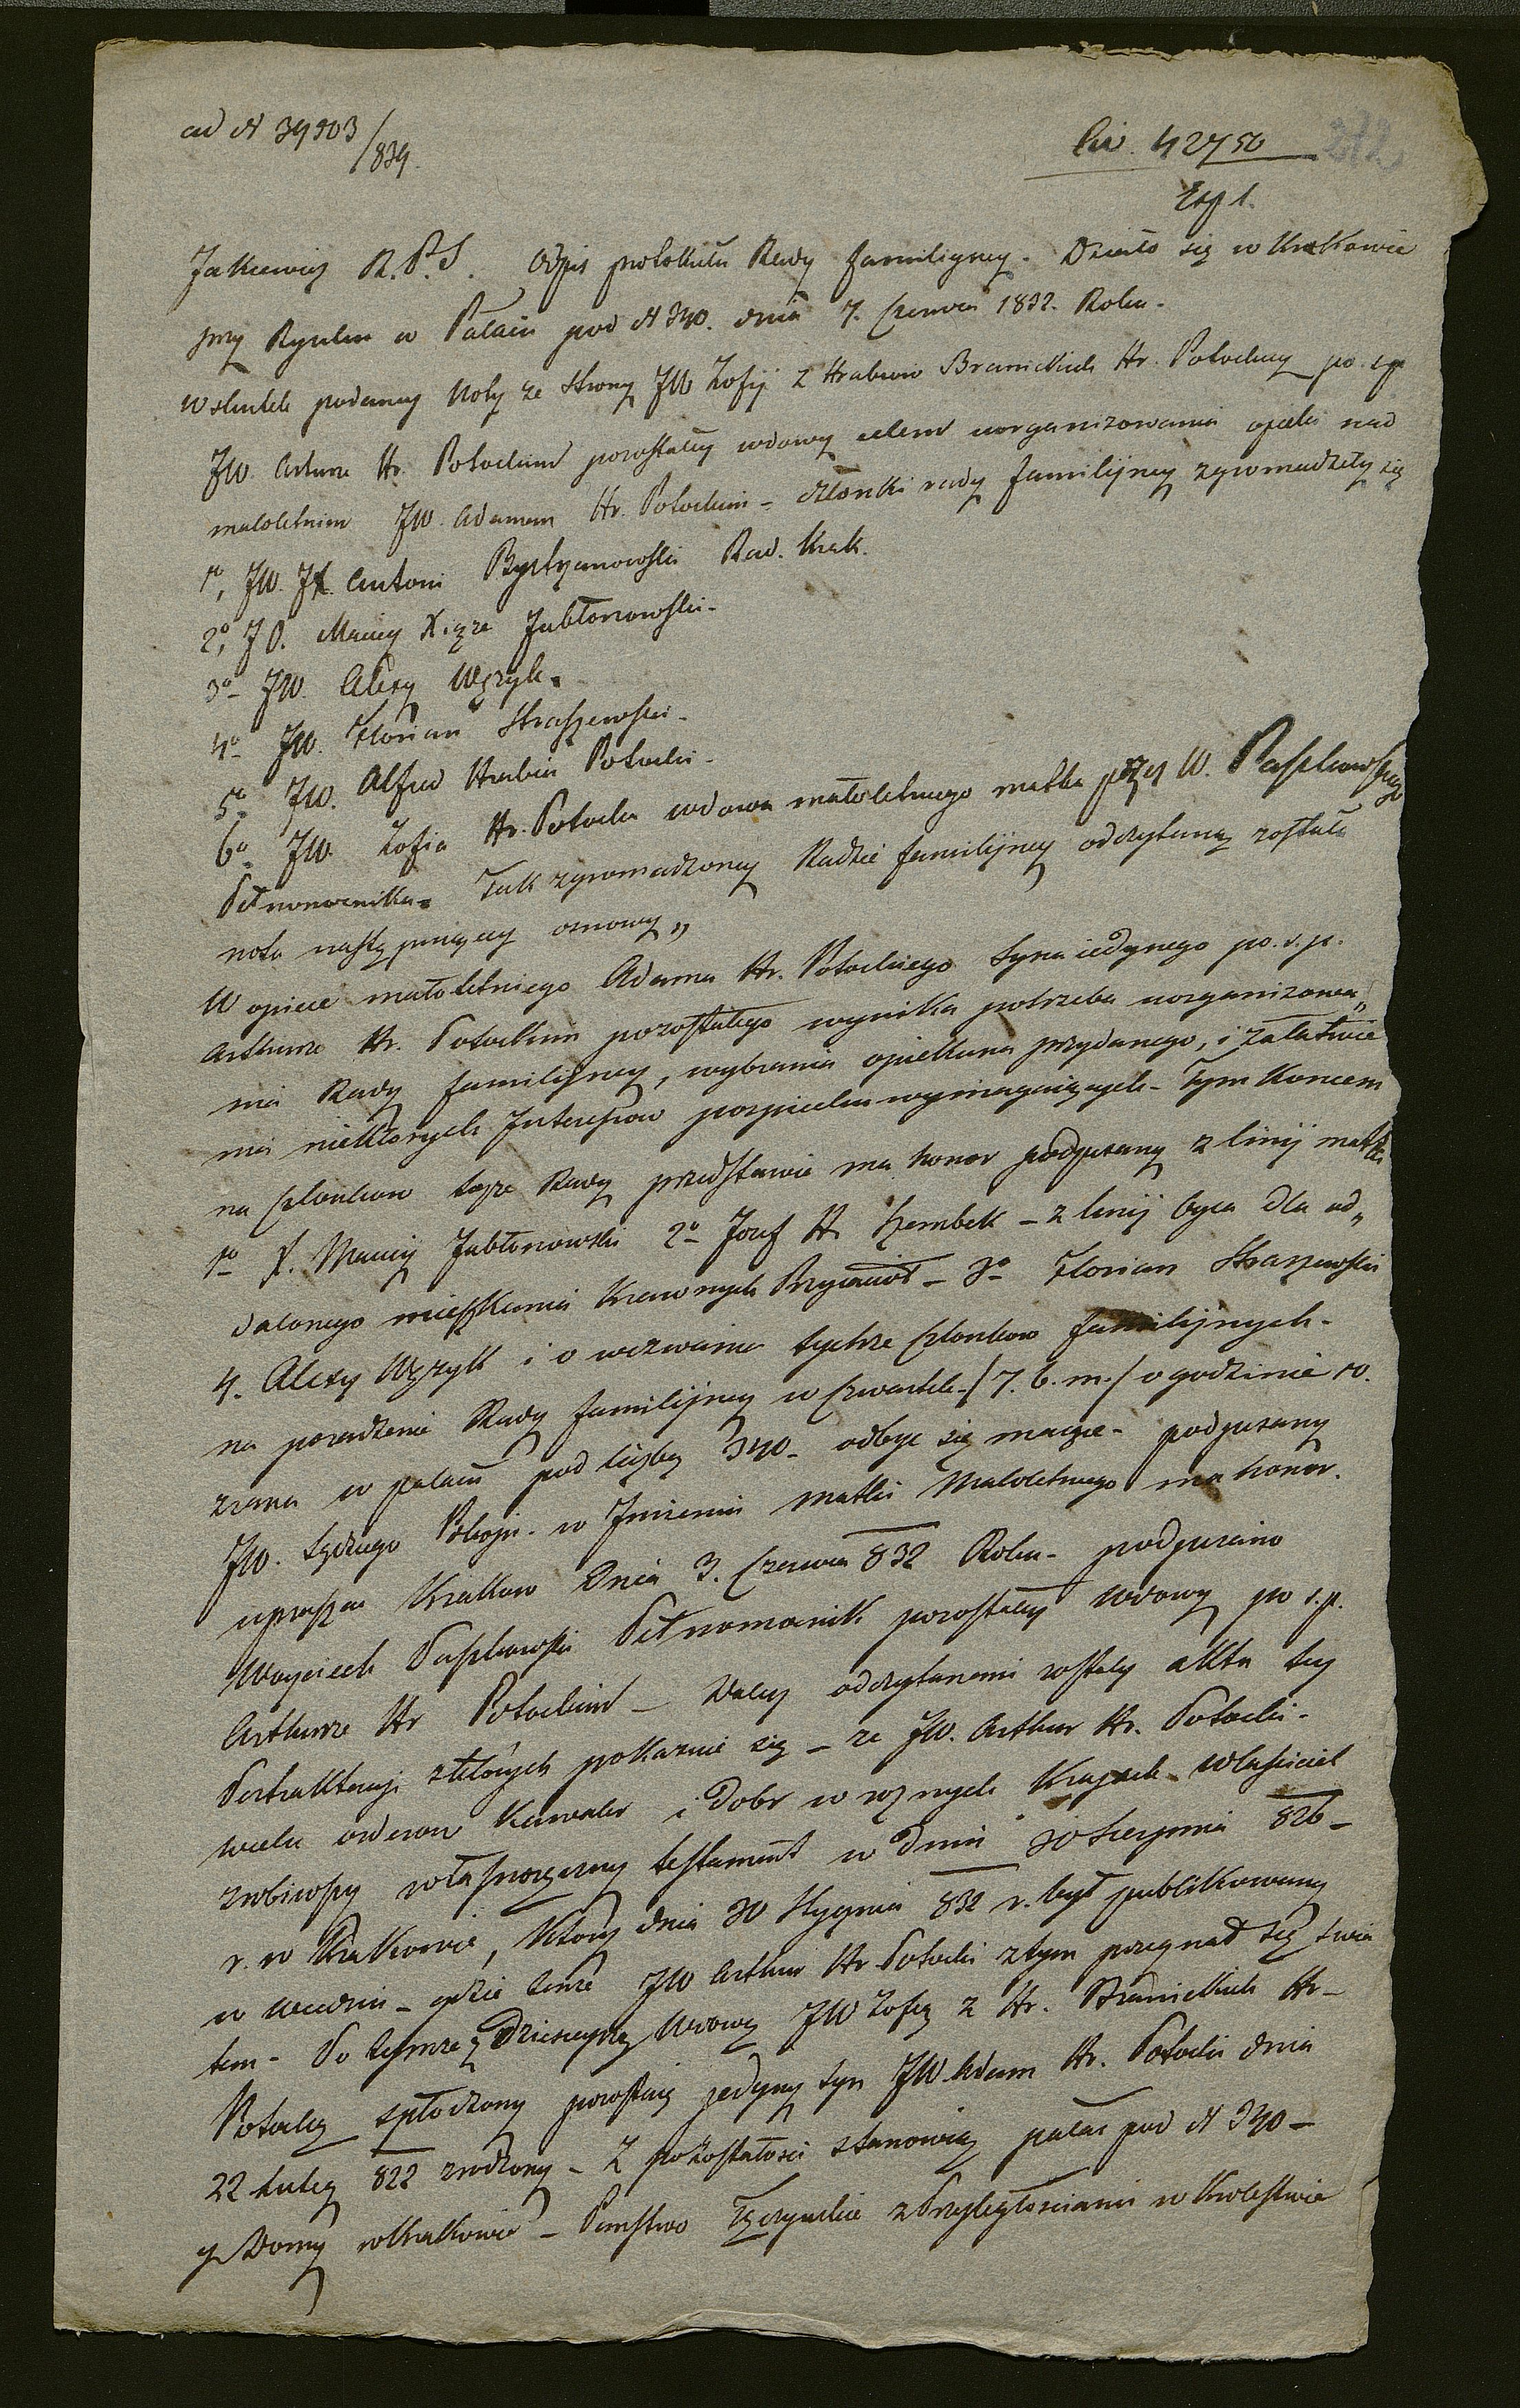 ad N 34903/834.
Civ. 42750
272
Exp 1.
Jakiewicz R.P.S. Odpis protokułu Rady familijney. Działo się w Krakowie
przy Rynku w Pałacu pod N 340. dnia 7. Czerwca 1832. Roku.
W skutek podaney Noty ze strony JW Zofij z Hrabiow Branickich Hr. Potockiey po s.p.
JW. Arturze Hr. Potockim pozostałey wdowy celem uorganizowania opieki nad
małoletnim JW. Adamem Hr. Potockim – członki rady familijney zgromadzeły się
1o, JW. JX. Antoni Bystrzanowski Kad. Krak.
2o, JO. Maciey Xiąże Jabłonowski.
3o JW. Alexy Wężyk.
4o JW. Florian Straszewski.
5o JW. Alfred Hrabia Potocki.
6o JW. Zofia Hr. Potocka wdowa małoletniego matka przez W. Paszkowskiego
Pełnomocnika. Tak zgromadzoney Radzie familijney odczytaną została
nota następuiącey osnowy„
W opiece małoletniego Adama Hr. Potockiego syna iedynego po s.p.
Arthurze Hr. Potockim pozostałego wynika potrzeba uorganizowa„
nia Rady familijney, wybrania opiekuna przydanego, i załatwie
nia niektorych Interessow pospiechu wymagaiących – Tym koncem
na członkow teyże Rady przedstawic ma honor podpisany z linij matki
1o X. Maciey Jabłonowski 2o Jozef Hr. Szembek – z linij oyca dla od„
dalonego mieszkania Krewnych Przyiacioł – 3o Florian Straszewski
4. Alexy Wężyk i o wezwanie tychże członkow familijnych.
na posiedzenie Rady familijney w Czwartek /7. b. m./ o godzinie 10.
zrana w pałacu pod liczbą 340 – odbyc się maiące – podpisany
JW. Sędziego Pokoju w Imieniu matki Małoletniego ma honor.
upraszac Krakow Dnia 3. Czerwca 832 Roku – podpisano
Woyciech Paszkowski Pełnomocnik pozostałey wdowy po s.p.
Arthurze Hr Potockim – Daley odczytanemi zostały akta tey
Pertraktacyi z których pokazuie się – że JW. Arthur Hr. Potocki.
wielu orderow Kawaler i Dobr w roznych Kraiach własciciel
zrobiwszy własnoręczny testament w Dniu 30 Sierpnia 826 –
r. w Krakowie, ktory dnia 30 Stycznia 832 r. był publikowany
w Wiedniu – gdzie tenże JW Arthur Hr. Potocki z tym pożegnał się swia
tem – Po tymże z Dzisieyszą Wdową JW Zofią z Hr. Branickich Hr –
Potocką spłodzony pozostaie jedyny syn JW. Adam Hr. Potocki dnia
22 Lutego 822 zrodzony – Z pozostałosci stanowią pałac pod N 340 –
y Domy w Krakowie – Panstwo Tęczynskie z Przyległosciami w Krolestwie